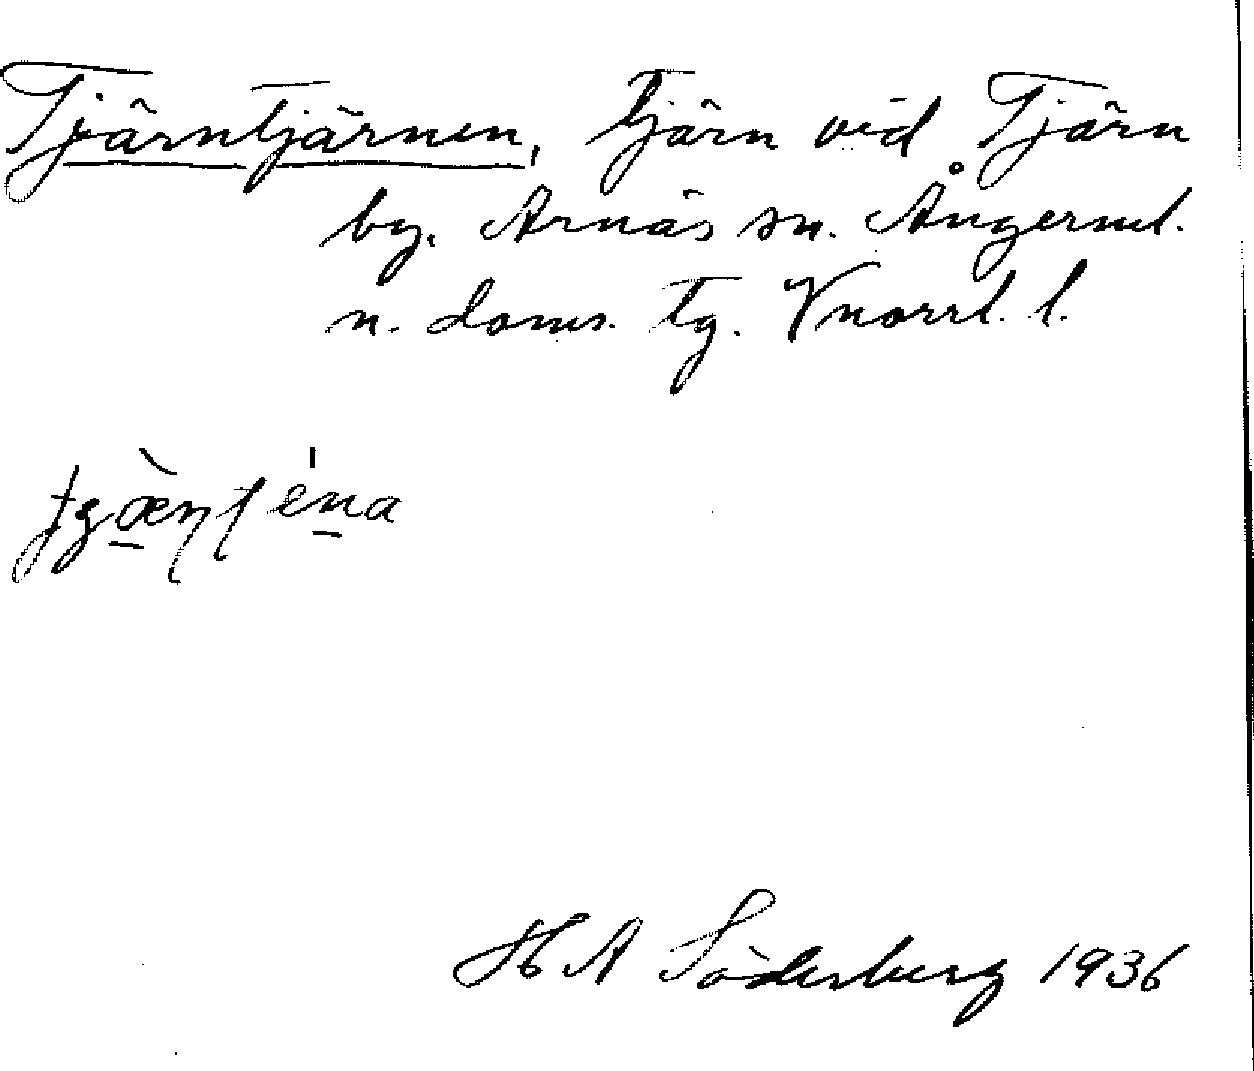 Tjärntjärnen, tjärn vid Tjärn
by. Arnäs sn. Ångerml.
n. doms. tg. Vnorrl. l.
H A Söderberg 1936